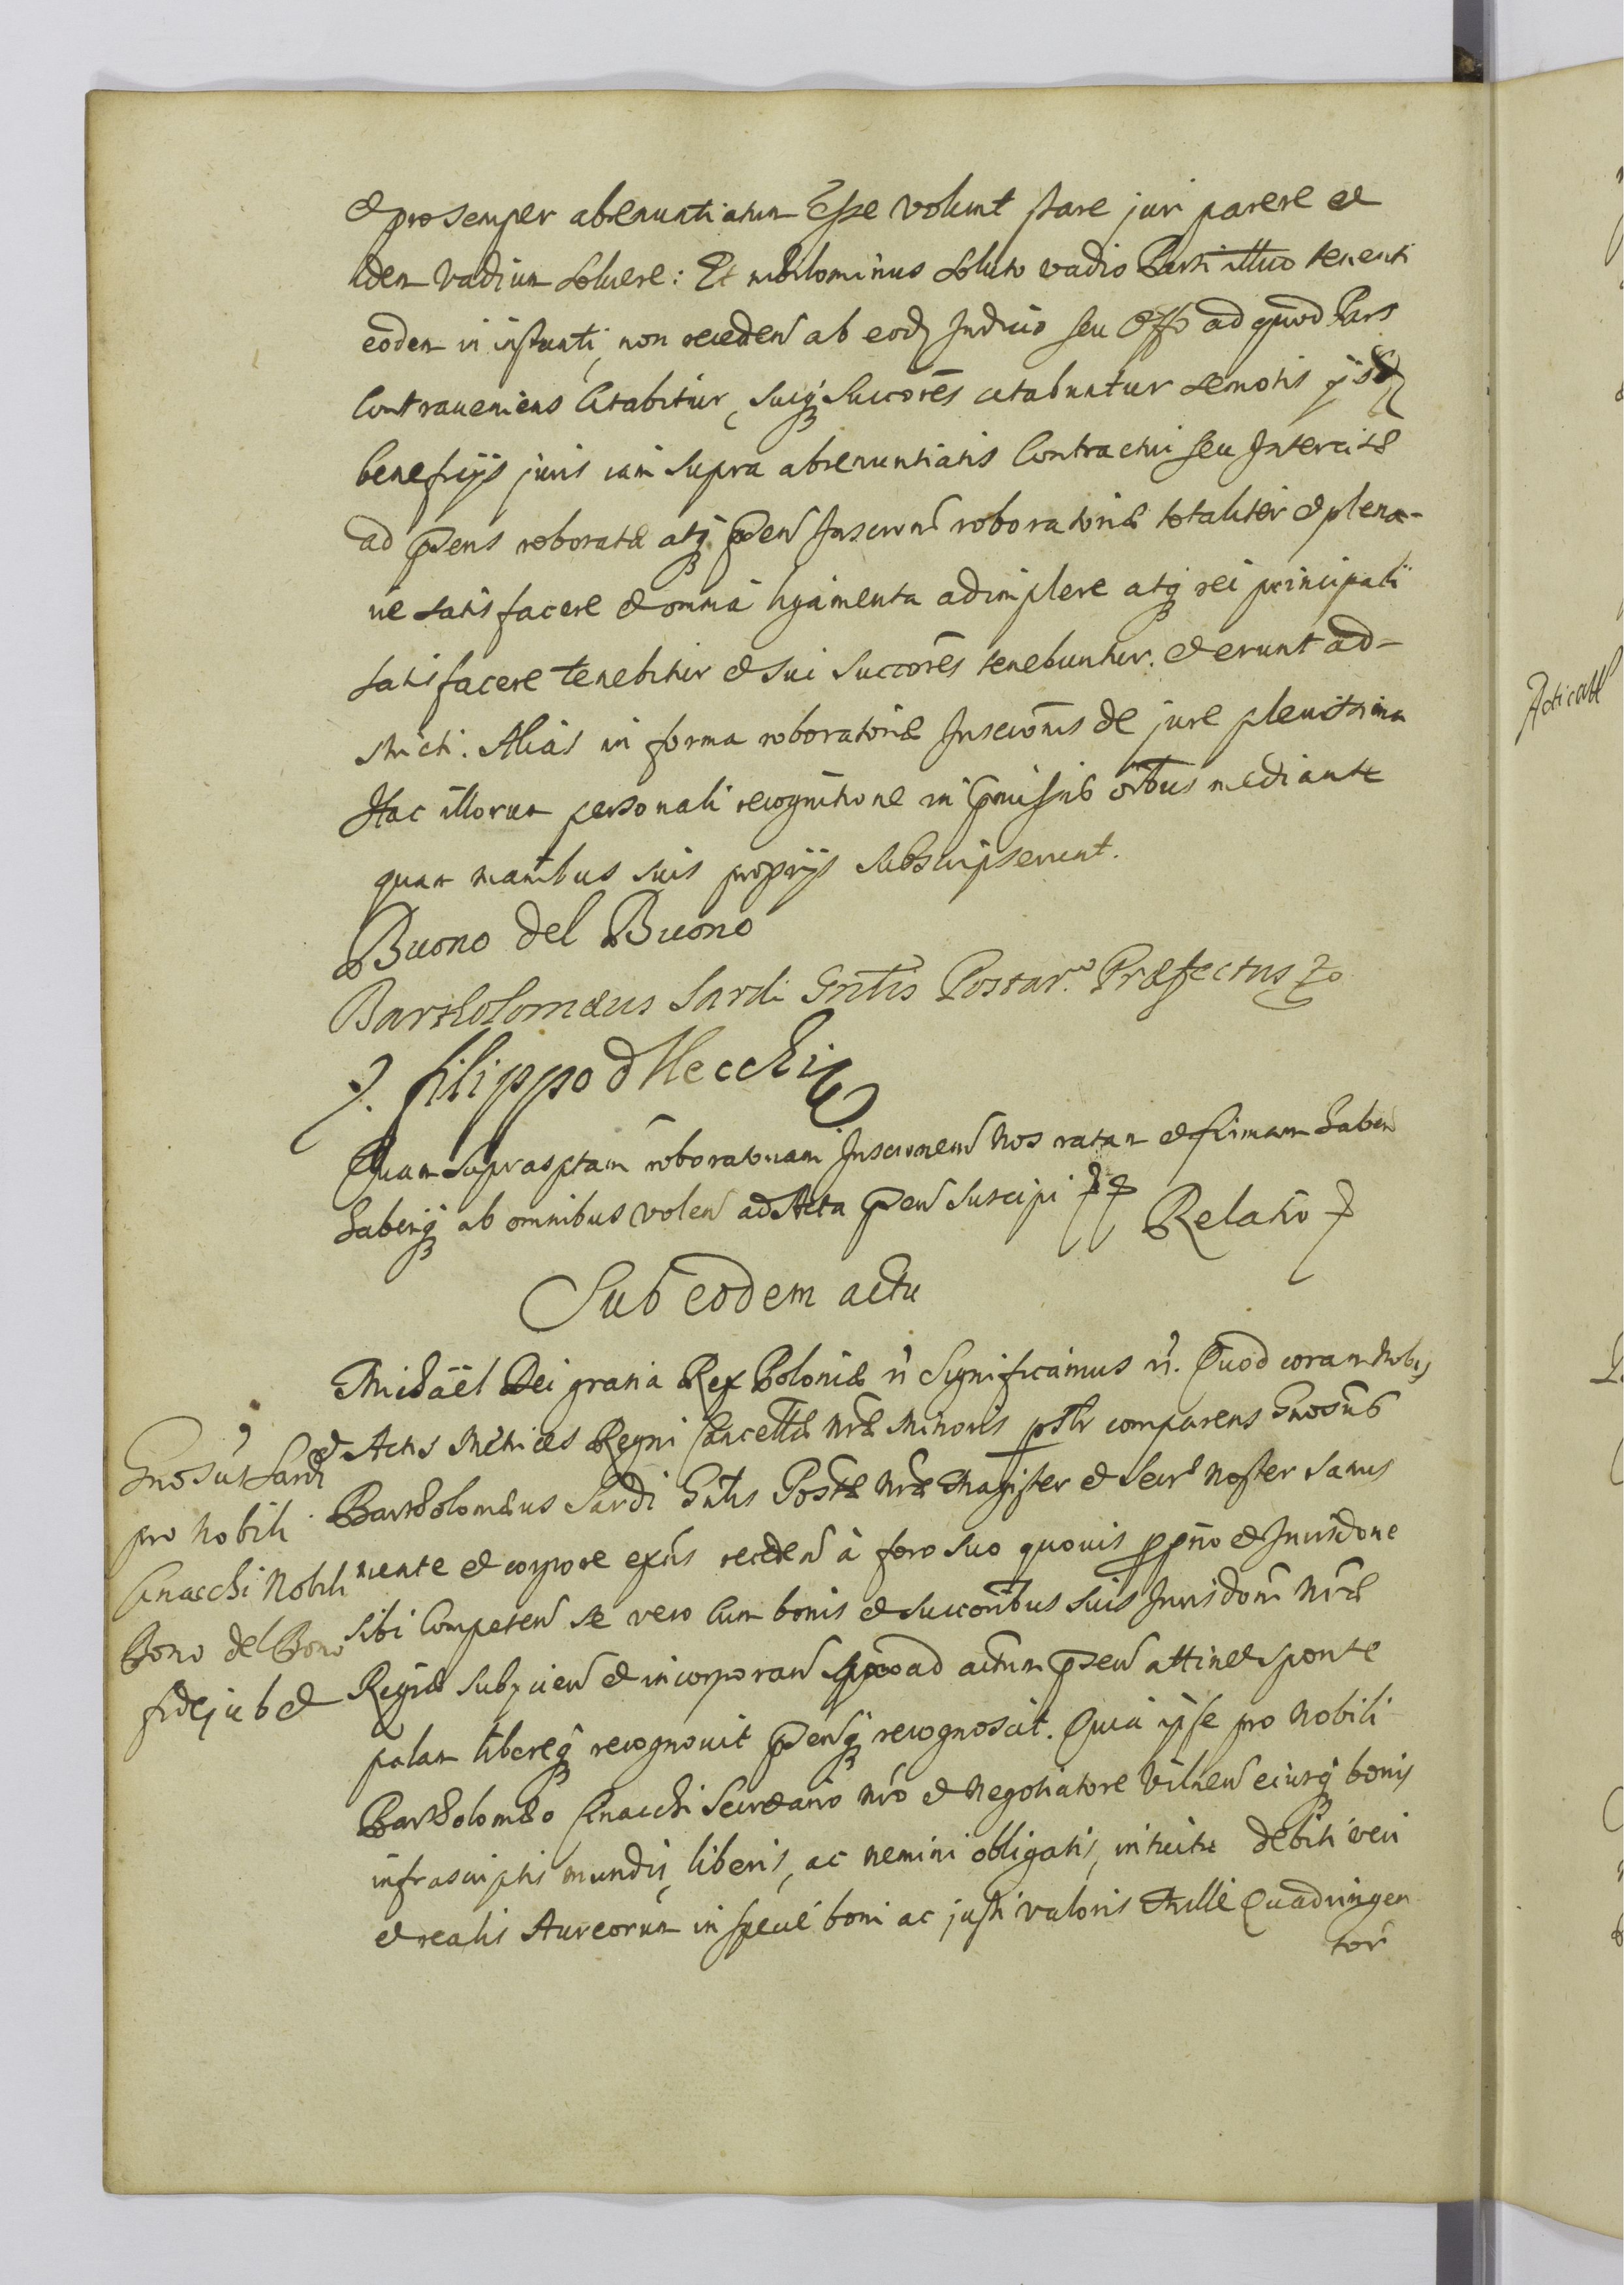 et pro semper abrenuntiatum Esse volunt stare juri parere et
idem vadium soluere: Et nihilominus soluto vadio Parti illud tenenti
eodem in instanti, non receden ab eod Judicio seu Offo ad quod Pars
Contraveniens Citabitur, suiq Succores citabuntur semotis ijsd
beneficijs juris iam supra abrenuntiatis Contractui seu Intercisæ
ad præsens roboratæ atq præsen Inscrònì roboratoriæ totaliter et plena-
rie satisfacere et omnia ligamenta adimplere atq rei principali
satisfacere tenebitur et sui Succores tenebuntur. et erunt ad-
stricti. Alias in forma roboratoriæ Inscronis de jure plenissima
Hac illorum personali recognitione in præmissis oibus mediante
quam manibus suis proprijs subscripserunt.
Buono del Buono
Bartholomæus Sardi Gnlis Postar. Præfectus
filippo d Hecchi
Quam suprasptam roboratoriam Inscronem Nos ratam et firmam haben
haberiq ab omnibus volen ad Acta præsen suscipi Relatio
Sub eodem actu
Michaël Dei gratia Rex Poloniæ Significamus. Quod coram Nobis
et Actis Metrices Regni Cancellæ Nræ Minoris psthr comparens Gnosus
Bartholomæus Sardi Gnlis Postæ Nræ Magister et Secrs Noster sanus
mente et corpore exns receden à foro suo quovis ppno et Jurisdone
sibi Competen se vero Cum bonis et successoribus suis Jurisdoni Nræ
Regiæ subijcien et incorporan quoad actum præsen attinet sponte
palam libereq recognovit præsenq recognoscit. Quia ipse pro Nobili
Bartholomeo Cinacchi Secretario Nro et Negotiatore Vilnen eiusq bonis
infrascriptis mundis, liberis, ac nemini obligatis, intuitu debiti veri
et realis Aureorum in specie boni ac justi valoris Mille Quadringen
tor
Gnosus Sardi
pro Nobili
Cinacchi Nobili
Bono del Bono
fidejubet
Acticatl